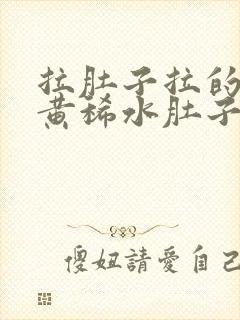 拉肚子拉的
黄稀水肚子
傻妞請愛自己